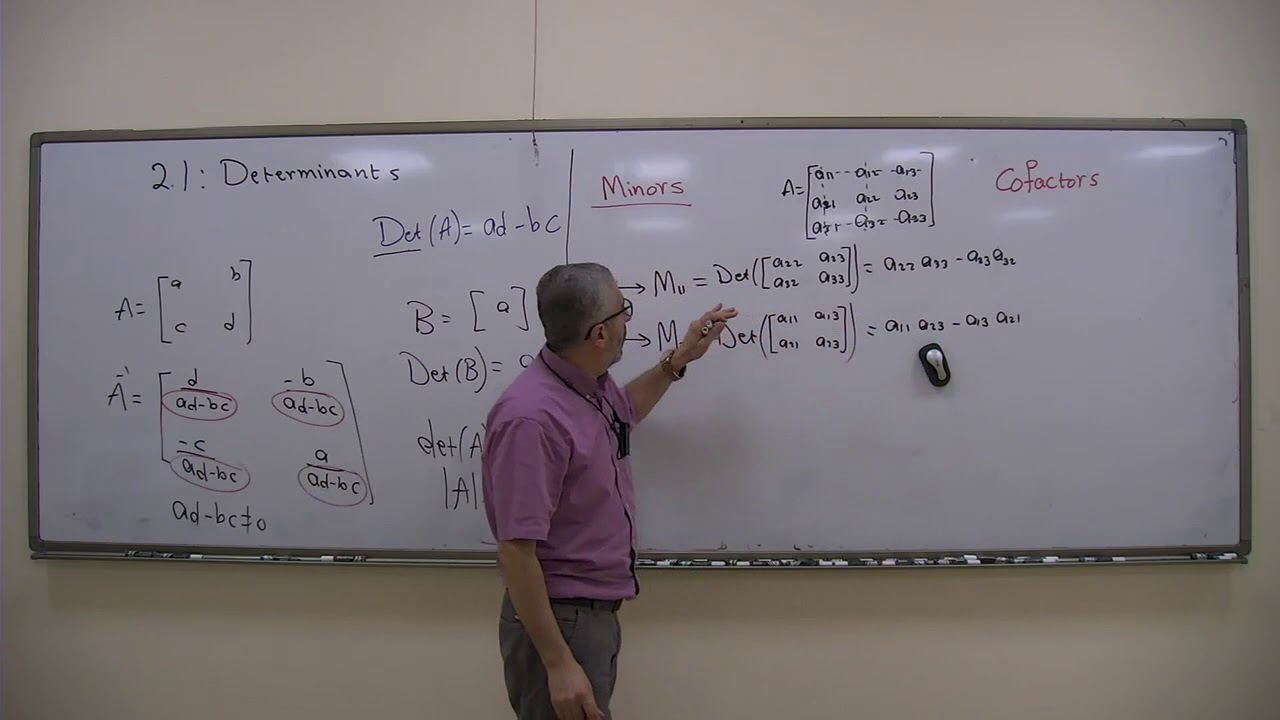 2.1: Determinants
Det(A) = ad - bc
A = [a b
c d]
B = [a]
Det(B) =
A⁻¹ = [d/ad-bc -b/ad-bc
-c/ad-bc a/ad-bc]
det(A)
|A|
ad-bc≠0
Minors
A = [a11 -- a12 - a13 -
a21 a22 a23
a31 - a32 - a33]
Cofactors
→ M11 = Det([a22 a23
a32 a33]) = a22 a33 - a23 a32
→ M Det([a11 a13
a21 a23]) = a11 a23 - a13 a21